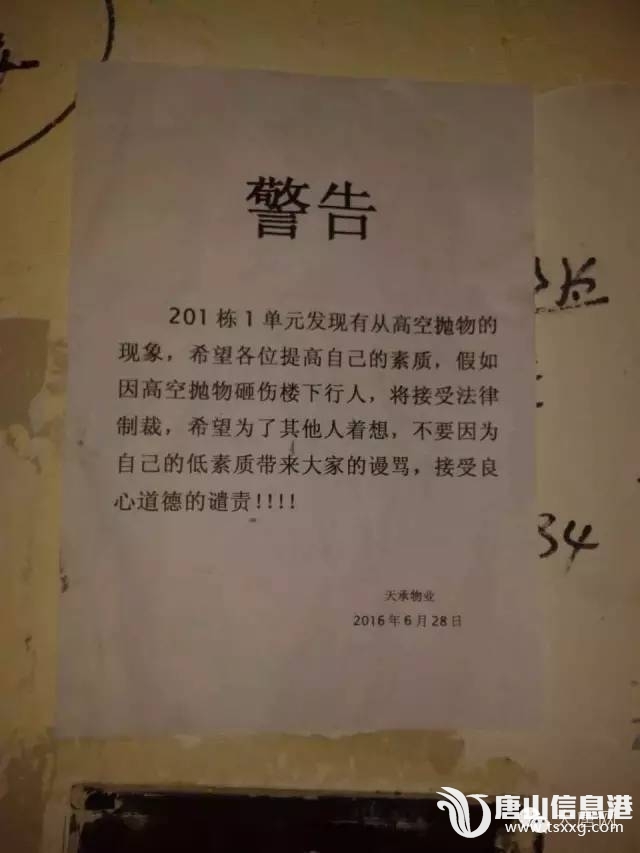 警告
201栋1单元发现有从高空抛物的
现象，希望各位提高自己的素质，假如
因高空抛物砸伤楼下行人，将接受法律
制裁，希望为了其他人着想，不要因为
自己的低素质带来大家的谩骂，接受良
心道德的谴责!!!!
天承物业
2016年6月28日
34
唐山信息港
www.tsxxg.com